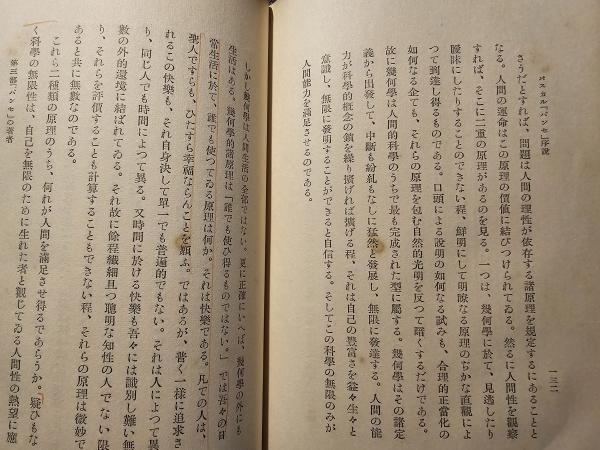 パスカル『パンセ』序説
一三二
さうだとすれば、問題は人間の理性が依存する諸原理を規定するにあることと
なる。人間の運命はこの原理の價値に結びつけられてゐる。然るに人間性を觀察
すれば、そこに二重の原理があるのを見る。一つは、幾何學に於て、見逃したり
曖昧にしたりすることのできない程、鮮明にして明瞭なる原理のぢかな直觀によ
つて到達し得るものである。口頭による說明の如何なる試みも、合理的正當化の
如何なる企ても、それらの原理を包む自然的光明を反つて暗くするだけである。
故に幾何學は人間的科學のうちで最も完成された型に屬する。幾何學はその諸定
義から出發して、中斷も紛乱もなしに猛然と發展し、無限に發達する。人間の能
力が科學的概念の鎖を繰り擴げれば擴げる程、それは自己の豐富さを益々生々と
意識し、無限に發明することができると自信する。そしてこの科學の無限のみが
人間能力を滿足させるのである。
しかし幾何學は人間生活の全部ではない。更に正確にいへば、幾何學の外にも
生活はある。幾何學的諸原理は「誰でも使ひ得るものではない。」では吾々の日
常生活に於て、誰でも使つてゐる原理は何か。それは快樂である。凡ての人は、
聖人ですらも、ひたすら幸福ならんことを願ふ。ではあるが、普く一樣に追求さ
れるこの快樂も、それ自身決して單一でも普遍的でもない。それは人によつて異
り、同じ人でも時間によつて異る。又時間に於ける快樂も吾々には識別し難い無
數の外的環境に結ばれてゐる。それ故に餘程纖細且つ聰明な知性の人でない限
り、それらを評價することも計算することもできない程、それらの原理は微妙で
あると共に無數なのである。
これら二種類の原理のうち、何れが人間を滿足させ得るであらうか。疑ひもな
く科學の無限性は、自己を無限のために生れた者と觀じてゐる人間性の熱望に應
第三部『パンセ』の著者